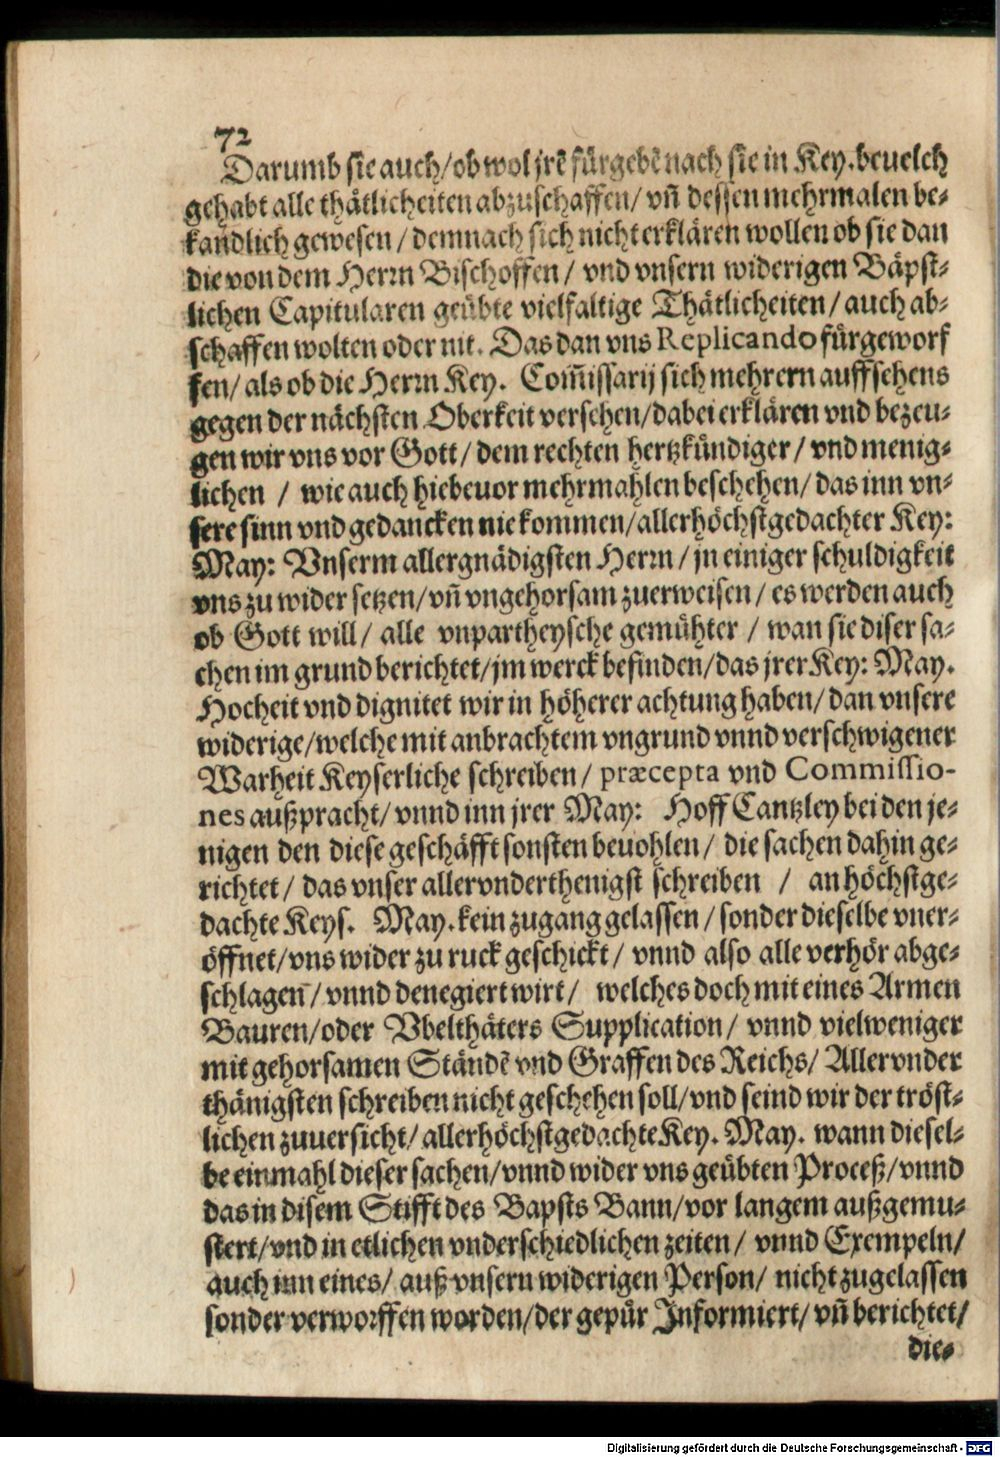 72
Darumb sie auch/ob wol jrē fürgebē nach sie in Key. beuelch
gehabt alle thätlicheiten abzuschaffen/ vn̄ dessen mehrmalen be-
kandlich gewesen / demnach sich nicht erklären wollen ob sie dan
die von dem Herrn Bischoffen / vnd vnsern widerigen Bäpst-
lichen Capitularen geübte vielfaltige Thätlicheiten / auch ab-
schaffen wolten oder nit. Das dan vns Replicando fürgeworf
fen/ als ob die Herrn Key. Com̄issarij sich mehrern auffsehens
gegen der nächsten Oberkeit versehen/dabei erklären vnd bezeu-
gen wir vns vor Gott/ dem rechten hertzkündiger / vnd menig-
lichen / wie auch hiebeuor mehrmahlen beschehen/ das inn vn-
sere sinn vnd gedancken nie kommen/allerhöchstgedachter Key:
May: Vnserm allergnädigsten Herrn / jn einiger schuldigkeit
vns zu wider setzen/vn̄ vngehorsam zuerweisen / es werden auch
ob Gott will/ alle vnpartheysche gemühter / wan sie diser sa-
chen im grund berichtet/jm werck befinden/das jrer Key: May.
Hocheit vnd dignitet wir in höherer achtung haben/ dan vnsere
widerige/welche mit anbrachtem vngrund vnnd verschwigener
Warheit Keyserliche schreiben / præcepta vnd Commissio-
nes außpracht/ vnnd inn jrer May: Hoff Cantzley bei den je-
nigen den diese geschäfft sonsten beuohlen / die sachen dahin ge-
richtet / das vnser allervnderthenigst schreiben / an höchstge-
dachte Keys. May. kein zugang gelassen / sonder dieselbe vner-
öffnet/vns wider zu ruck geschickt / vnnd also alle verhör abge-
schlagen / vnnd denegiert wirt / welches doch mit eines Armen
Bauren/oder Vbelthäters Supplication/ vnnd vielweniger
mit gehorsamen Ständē vnd Graffen des Reichs/ Allervnder
thänigsten schreiben nicht geschehen soll/vnd seind wir der tröst-
lichen zuuersicht/ allerhöchstgedachte Key. May. wann diesel-
be einmahl dieser sachen/vnnd wider vns geübten Proceß/vnnd
das in disem Stifft des Bapsts Bann/vor langem außgemu-
stert/vnd in etlichen vnderschiedlichen zeiten / vnnd Exempeln/
auch inn eines/ auß vnsern widerigen Person/ nicht zugelassen
sonder verworffen worden/der gepür Informiert/ vn̄ berichtet/
die-
Digitalisierung gefördert durch die Deutsche Forschungsgemeinschaft - DFG